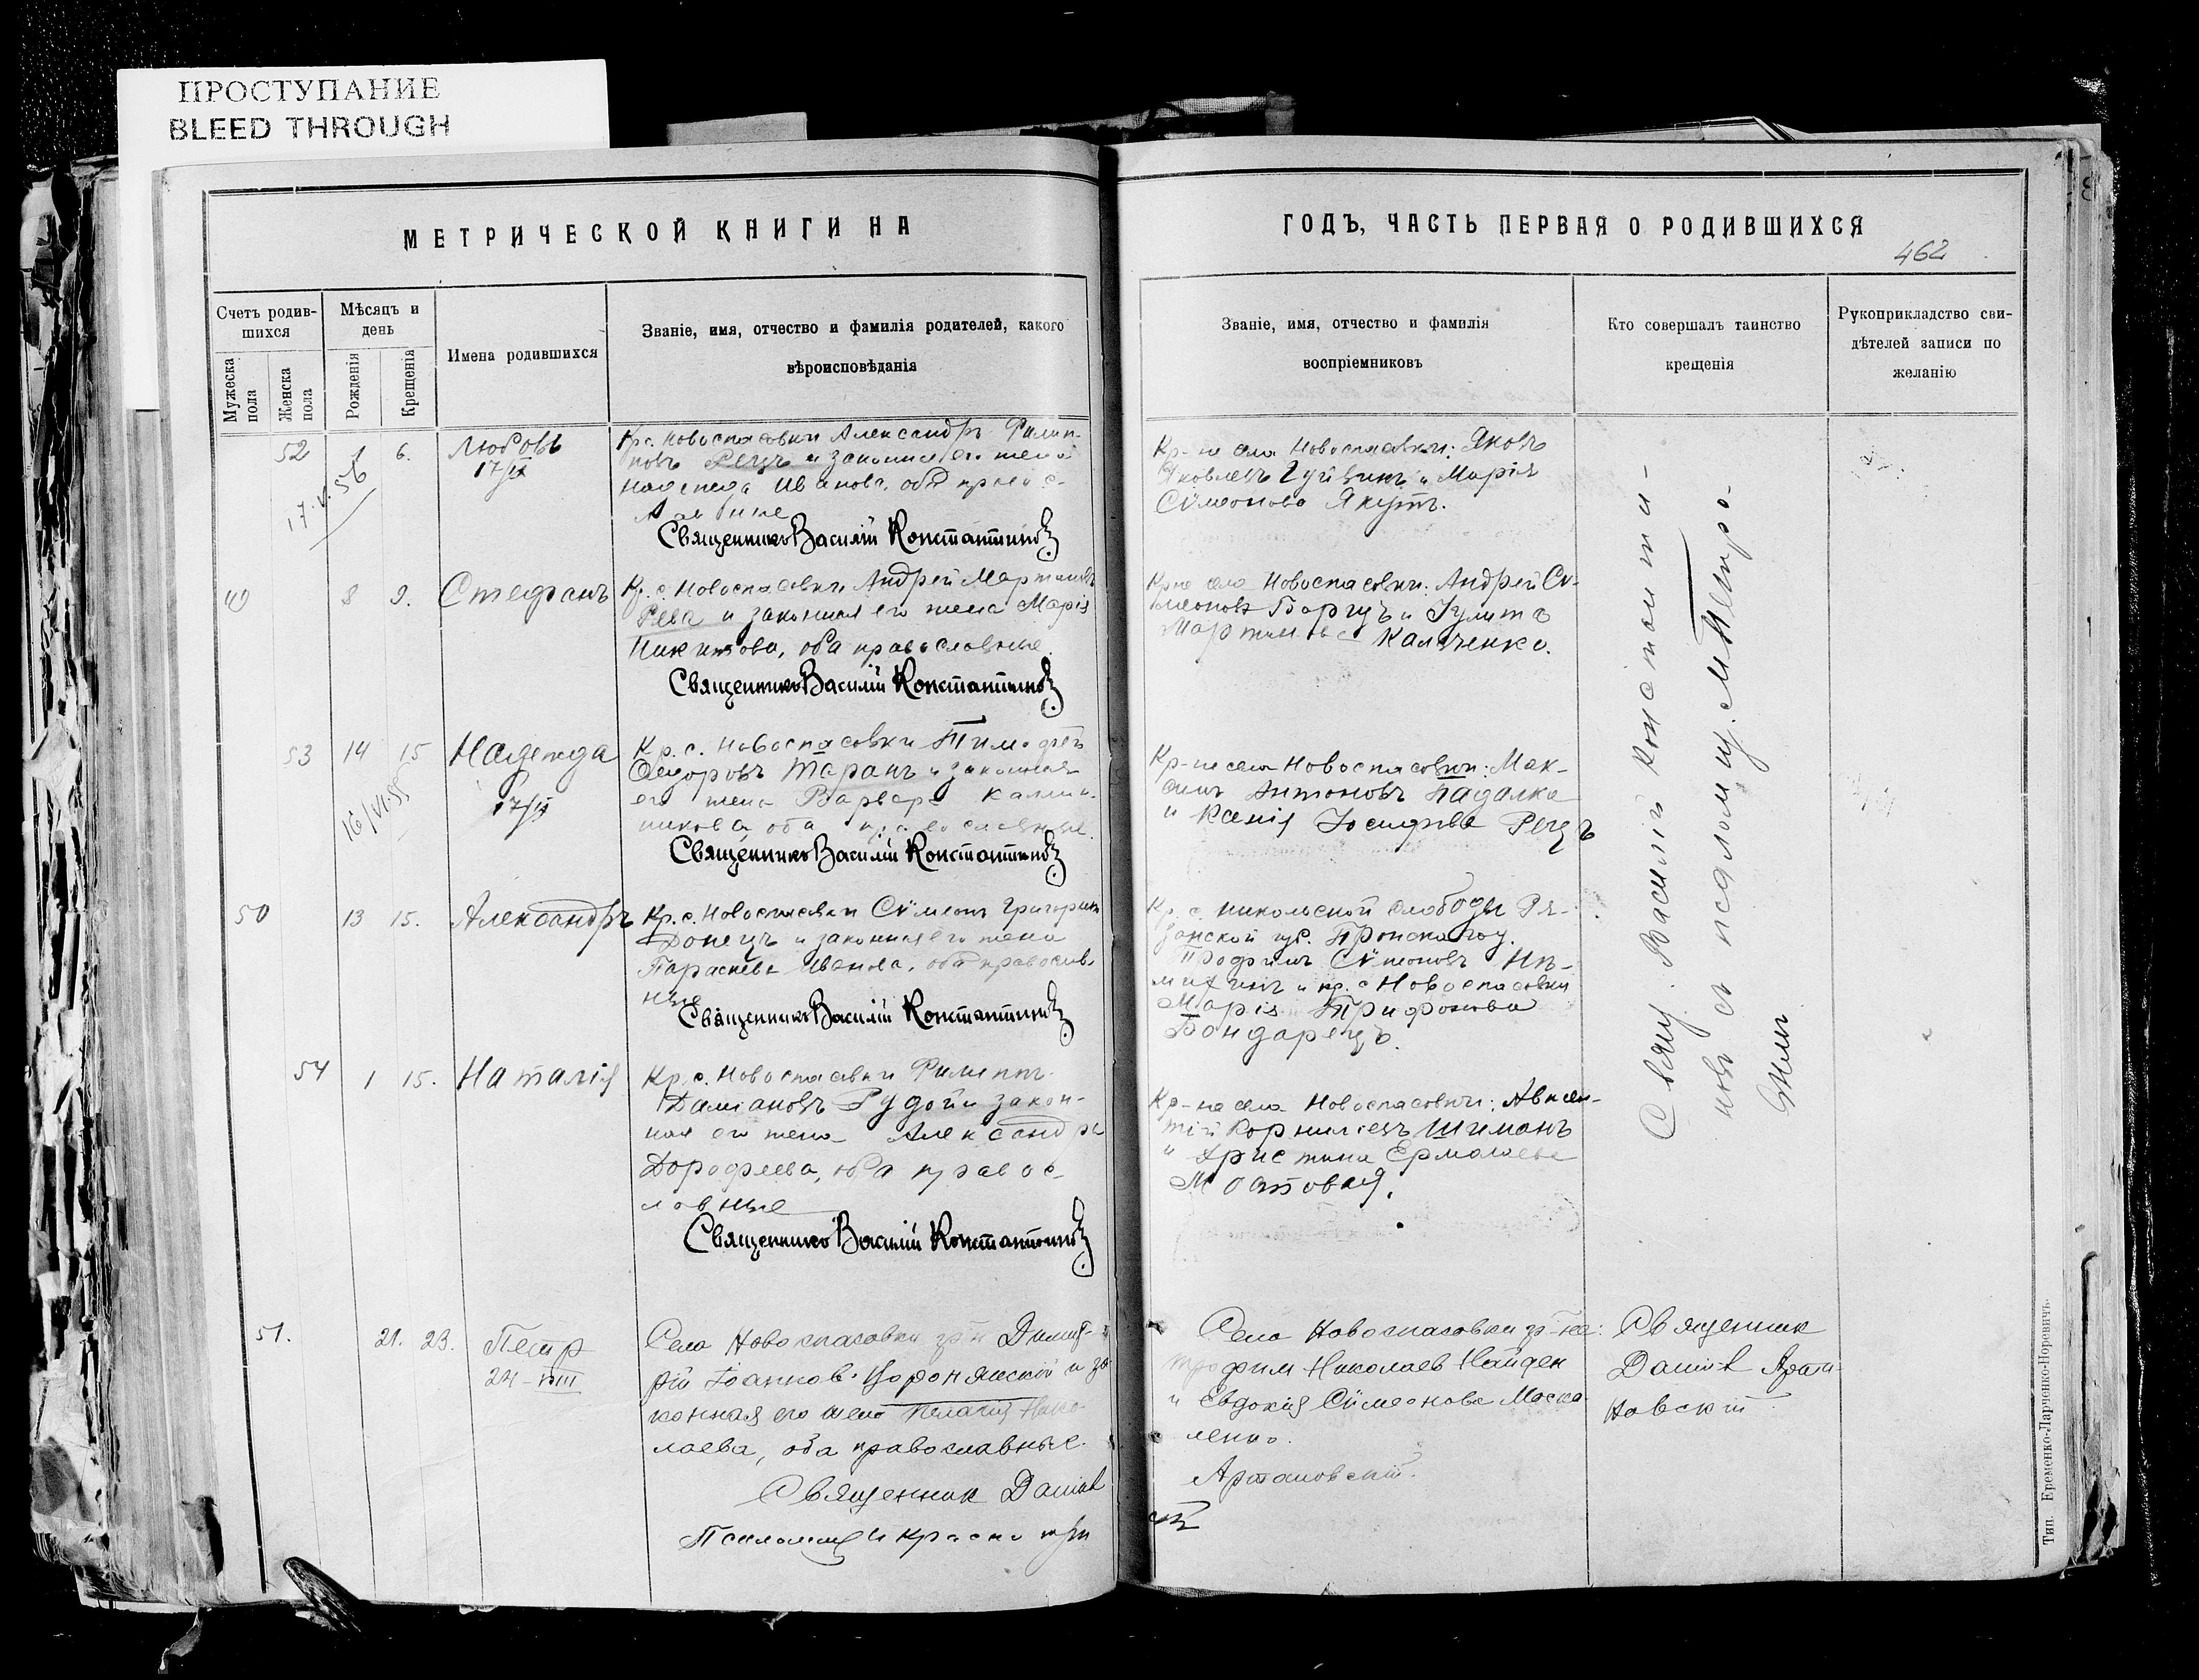 ПРОСТУПАНИЕ
BLEED THROUGH
МЕТРИЧЕСКОЙ КНИГИ НА
ГОДЪ, ЧАСТЬ ПЕРВАЯ О РОДИВШИХСЯ
462
Счетъ родив-
шихся
Мужеска пола
Женска пола
Мѣсяцъ и
день
Рожденія
Крещенія
Имена родившихся
Званіе, имя, отчество и фамилія родителей, какого
вѣроисповѣданія
Званіе, имя, отчество и фамилія
воспріемниковъ
Кто совершалъ таинство
крещенія
Рукоприкладство сви-
дѣтелей записи по
желанію
52
6.
Любовь
17/IX
Кр. с. Новоспасовки Александръ Филип-
повъ Рецъ и законная его жена
Надежда Иванова, оба правос-
лавные
Священникъ Василій Константиновъ
Кр-не села Новоспасовки: Яковъ
Яковлевъ и Марія
Сѵмеонова Якутъ.
8 9.
Стефанъ
Кр. с. Новоспасовки Андрей Мартиновъ
Рева и законная его жена Марія
Никитова, оба православные.
Священникъ Василій Константиновъ
Кр-не села Новоспасовки: Андрей Сѵ-
меоновъ и Іулита
Мартинова Каличенко.
53 14 15
Надежда
17/IX
Кр. с. Новоспасовки Тимофей
Ѳедоровъ Таранъ и законная
его жена Варвара Калин-
никова, оба православные.
Священникъ Василій Константиновъ
Кр-не села Новоспасовки: Мак-
симъ Антоновъ Падалка
и Ксенія Іосифова Рецъ
50 13 15.
Александръ
Кр. с. Новоспасовки Сѵмеонъ Григорьевъ
Донецъ и законная его жена
Параскева Иванова, оба православ-
ные
Священникъ Василій Константиновъ
Кр. с. Никольской слободы Ря-
занской губ. Пронска го у.
Трофимъ Сѵмеоновъ
и кр. с Новоспасовки
Марія Трифонова
Бондарецъ.
54 1 15.
Наталія
Кр. с. Новоспасовки Филиппъ
Даміановъ Рудой и закон-
ная его жена Александра
Дорофеева, оба правос-
лавные
Священникъ Василій Константиновъ
Кр-не села Новоспасовки: Авксен-
тій Корниліевъ Шиманъ
и Христина Ермолаева
Мостовая.
Свящ. Василій Константи-
новъ съ псаломщ. М. Петро-
51. 21. 23.
Петр
24-VIII
Село Новоспасовки гр-н Димит-
рій Іоаннов. и за-
конная его жена Пелагия Нико-
лаева, оба православные.
Священник Даниил
Артановский.
Псаломщик
Село Новоспасовки гр-не:
Трофим Николаев Найден
и Евдокия Сѵмеонова Моска-
ленко.
Священник
Даниил Арта-
новский
Тип. Еременко-Ларченко-Норевичъ.